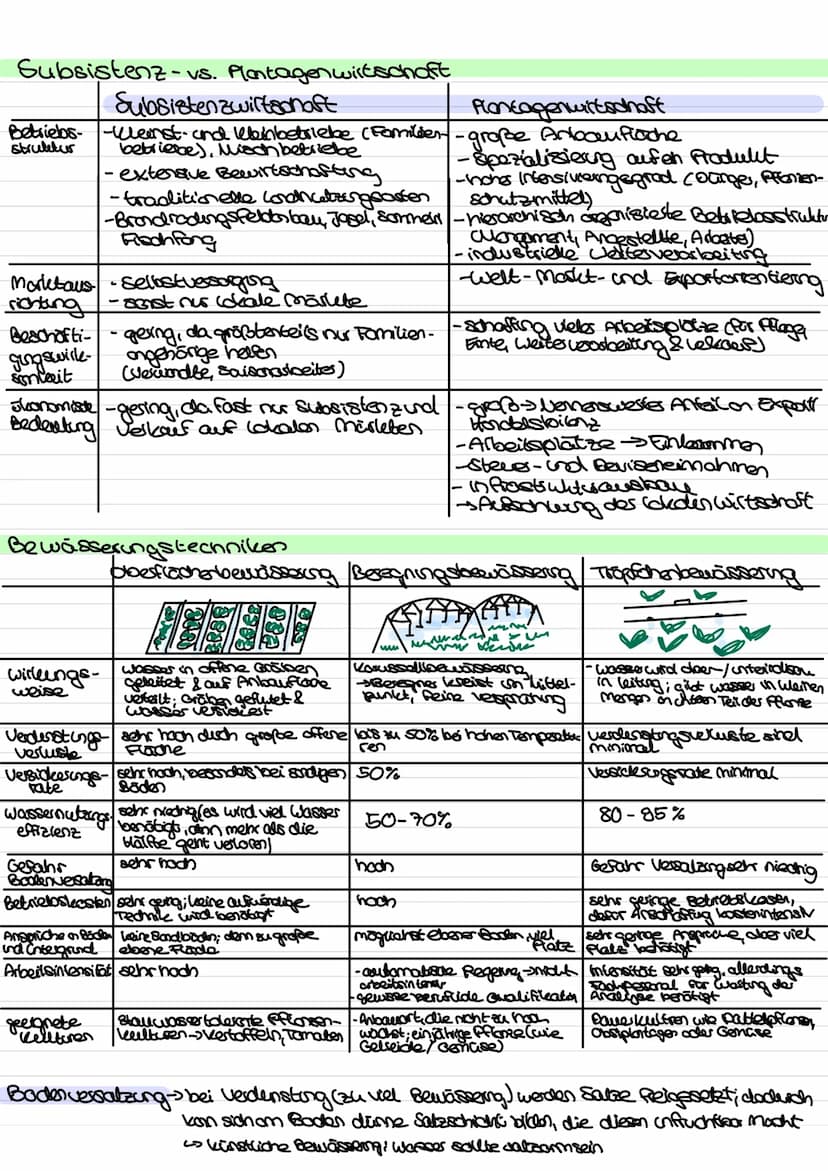 Subsistenz- vs. Plantagenwirtschaft
Subsistenzwirtschaft
Plantagenwirtschaft
Betriebs-
struktur
-Kleinst- und Kleinbetriebe (Familien-
betriebe), Mischbetriebe
- extensive Bewirtschaftung
- traditionelle Landnutzungsarten
-Brandrodungsfeldanbau, Jagd, Sammeln
Fischfang
- große Anbaufläche
- Spezialisierung auf ein Produkt
-hoher Intensivierungsgrad (Dünger, Pflanzen-
schutzmittel)
- hierarchisch organisierte Betriebsstruktur
(Management, Angestellte, Arbeiter)
- industrielle Weiterverarbeitung
Marktaus-
richtung
- Selbstversorgung
- sonst nur lokale Märkte
-Welt-Markt- und Exportorientierung
Beschäfti-
gungswirk-
samkeit
- gering, da größtenteils nur Familien-
angehörige helfen
(Verwandte, Saisonarbeiter)
- Schaffung vieler Arbeitsplätze (für Pflege,
Ernte, Weiterverarbeitung & Verkauf)
ökonomische
Bedeutung
-gering, da fast nur Subsistenz und
Verkauf auf lokalen Märkten
- groß→ Nennenswerter Anteil an Export
Handelsbilanz
-Arbeitsplätze → Einkommen
-Steuer- und Deviseneinnahmen
- Infrastrukturausbau
→ Aufschwung der lokalen Wirtschaft
Bewässerungstechniken
Oberflächenbewässerung
Beregnungsbewässerung
Tröpfchenbewässerung
Wirkungs-
weise
Wasser in offene Gräben
geleitet & auf Anbaufläche
verteilt; Gräben geflutet &
Wasser versickert
Karussellbewässerung
→Beregner kreist um Mittel-
punkt, feine Versprühung
- Wasser wird ober-/unterirdisch
in Leitung; gibt Wasser in kleinen
Mengen an Teil der Pflanze
Verdunstungs-
verluste
sehr hoch durch große offene
Fläche
bis zu 50% bei hohen Temperatu-
ren
Verdunstungsverluste sind
minimal
Versickerungs-
rate
sehr hoch, besonders bei sandigen
Böden
50%
Versickerungsrate minimal
Wassernutzungs-
effizienz
sehr niedrig (es wird viel Wasser
benötigt, denn mehr als die
Hälfte geht verloren)
50-70%
80-85%
Gefahr
Bodenversalzung
sehr hoch
hoch
Gefahr Versalzung sehr niedrig
Betriebskosten
sehr gering; keine aufwändige
Technik wird benötigt
hoch
sehr geringe Betriebskosten,
dafür Anschaffung kostenintensiv
Ansprüche an Boden
und Untergrund
keine Sandböden; denn zu große
ebene Fläche
möglichst ebener Boden, viel
Platz
sehr geringe Ansprüche, aber viel
Platz benötigt
Arbeitsintensität
sehr hoch
-automatische Regelung →nicht
arbeitsintensiv
- gewisse berufliche Qualifikation
Intensität sehr gering, allerdings
Fachpersonal für Wartung der
Anlage benötigt
geeignete
Kulturen
Stauwassertolerante Pflanzen-
kulturen → Kartoffeln, Tomaten
-Anbauart, die nicht zu hoch
wächst; einjährige Pflanze (wie
Getreide/Gemüse)
Dauerkulturen wie Dattelpalmen,
Obstplantagen oder Gemüse
Bodenversalzung→ bei Verdunstung (zu viel Bewässerung) werden Salze freigesetzt; dadurch
kann sich am Boden dünne Salzschicht bilden, die diesen unfruchtbar macht
↳ künstliche Bewässerung: Wasser sollte salzarm sein